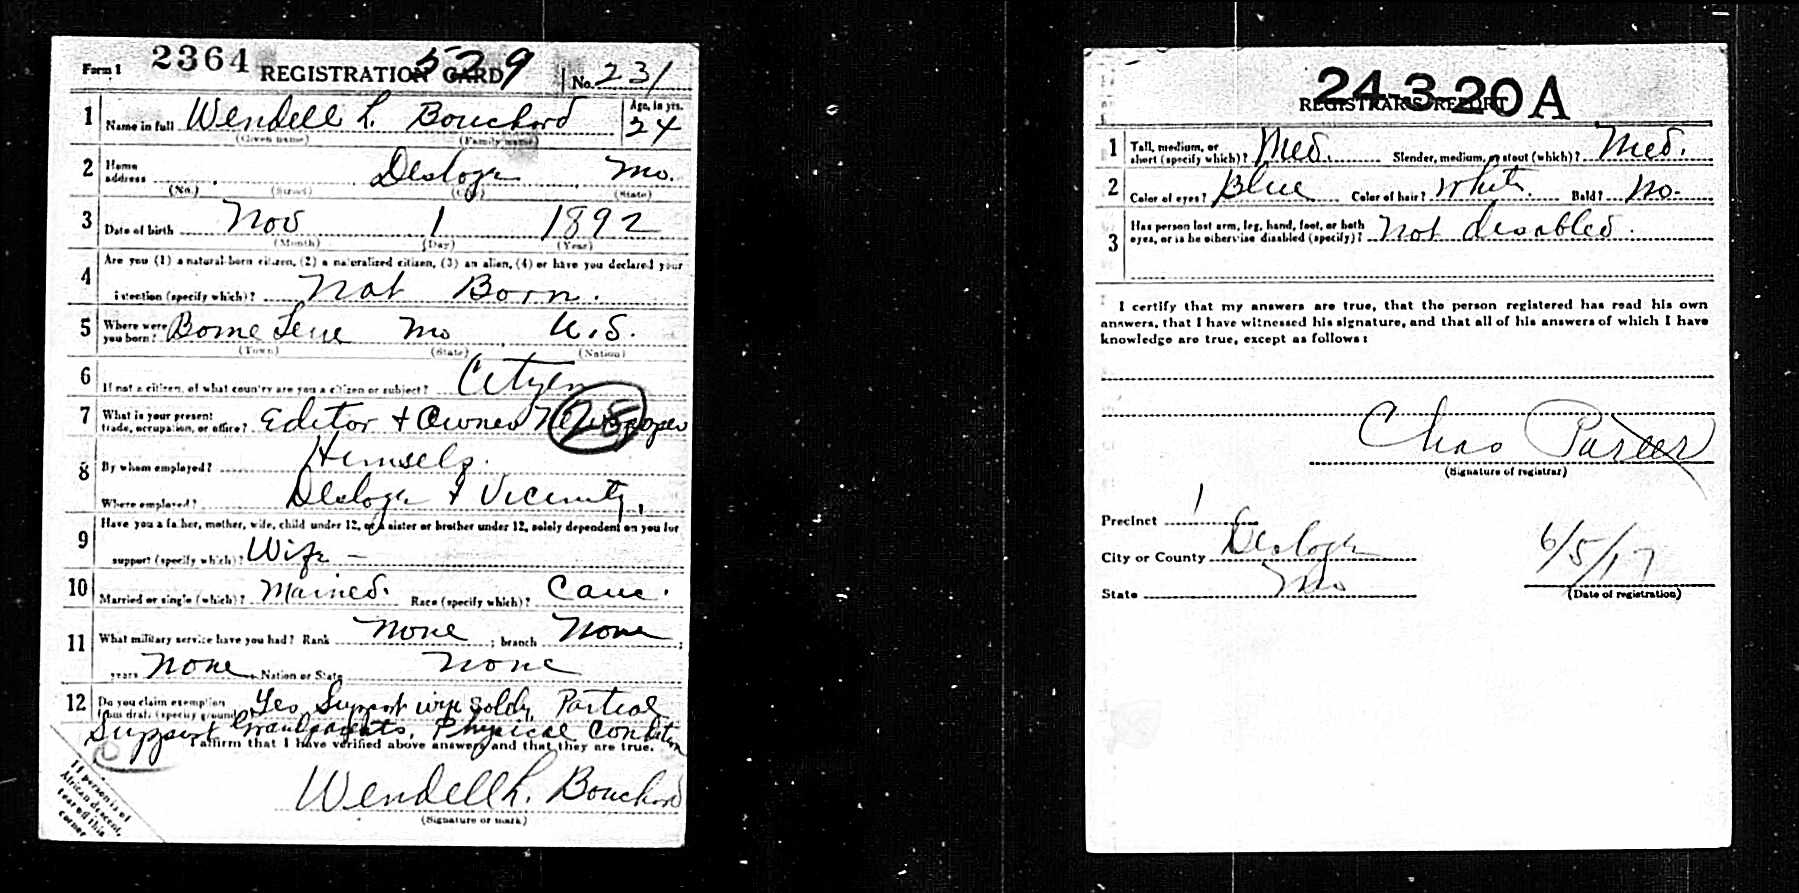 Form 1 2364 REGISTRATION CARD 529 No. 231
1 Name in full Wendell L. Bouchard Age, in yrs. 24
(Given name) (Family name)
2 Home address Desloge Mo.
(No.) (Street) (City) (State)
3 Date of birth Nov 1 1892
(Month) (Day) (Year)
4 Are you (1) a natural-born citizen, (2) a naturalized citizen, (3) an alien, (4) or have you declared your
intention (specify which)? Nat Born.
5 Where were you born? Bonne Terre Mo U.S.
(Town) (State) (Nation)
6 If not a citizen, of what country are you a citizen or subject? Citizen
7 What is your present trade, occupation, or office? Editor + Owner Newspaper
8 By whom employed? Himself.
Where employed? Desloge & Vicinity,
9 Have you a father, mother, wife, child under 12, or a sister or brother under 12, solely dependent on you for
support (specify which)? Wife —
10 Married or single (which)? Married. Race (specify which)? Cauc.
11 What military service have you had? Rank None ; branch None ;
years None Nation or State None
12 Do you claim exemption from draft (specify grounds)? Yes Support wife Solely, Partial
Support Grandparents. Physical Condition
I affirm that I have verified above answers and that they are true.
Wendell L. Bouchard
(Signature or mark)
If person is of
African descent,
tear off this
corner
24-3-20 A
REGISTRAR'S REPORT
1 Tall, medium, or short (specify which)? Med. Slender, medium, or stout (which)? Med.
2 Color of eyes? Blue Color of hair? White. Bald? No.
3 Has person lost arm, leg, hand, foot, or both eyes, or is he otherwise disabled (specify)? Not disabled.
I certify that my answers are true, that the person registered has read his own
answers, that I have witnessed his signature, and that all of his answers of which I have
knowledge are true, except as follows:
Chas
(Signature of registrar)
Precinct 1
City or County Desloge
State Mo
6/5/17
(Date of registration)